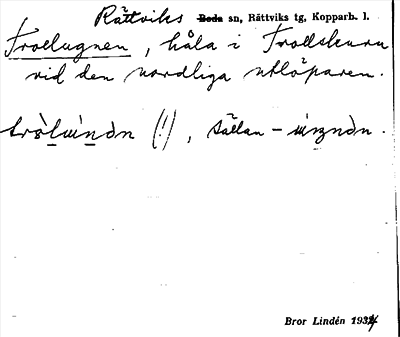 Rättviks Boda sn, Rättviks tg, Kopparb. l.
Trollugnen, håla i Trollskuru
vid den nordliga utlöparen.
(!), sällan –
Bror Lindén 1934